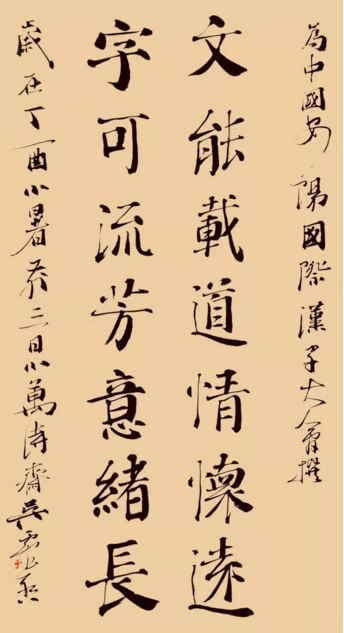 為中國安陽國際漢字大會撰
文能載道情懷遠
字可流芳意緒長
歲在丁酉小暑前三日小萬時齋吳